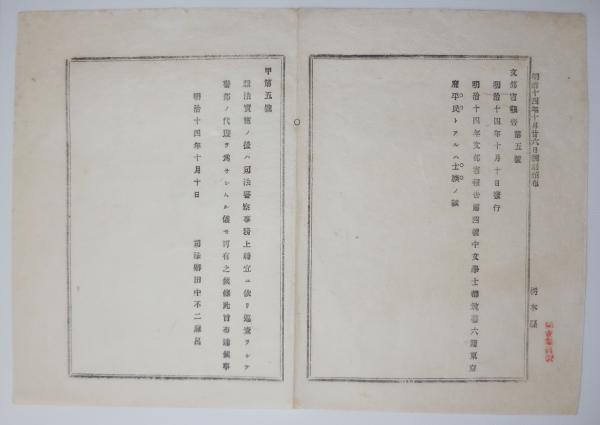 明治十四年十月廿六日
栃木縣
文部省報告第五號
明治十四年十月十日發行
明治十四年文部省報告第四號中文學士都筑馨六籍東京
府平民トアルハ士族ノ誤
甲第五號
治罪法實施ノ後ハ司法警察事務上時宜ニ依リ巡査ヲシテ
警部ノ代理ヲ爲サシムル儀モ可有之候條此旨布達候事
明治十四年十月十日
司法卿田中不二麿